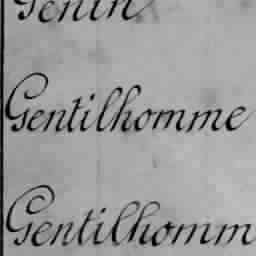 Genin
Gentilhomme
Gentilhomm